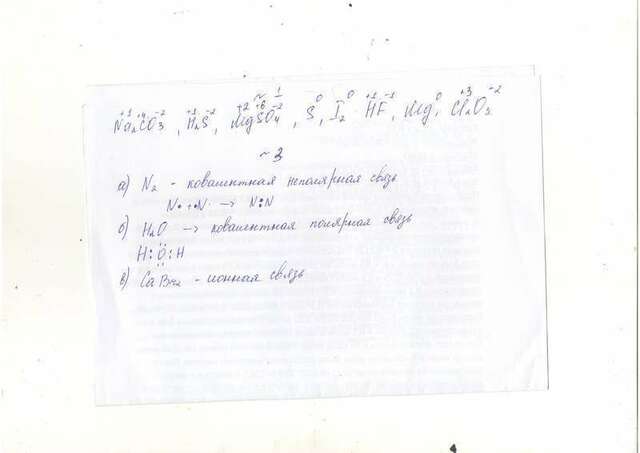 ~ 1
Na₂⁺¹C⁺⁴O₃⁻², H₂⁺¹S⁻², Mg⁺²S⁺⁶O₄⁻², S⁰, I₂⁰ H⁺¹F⁻¹, Mg⁰, Cl₂⁺³O₃⁻²
~ 3
а) N₂ - ковалентная неполярная связь
N• + •N → N:N
б) H₂O → ковалентная полярная связь
H:O:H
в) CaBr₂ - ионная связь